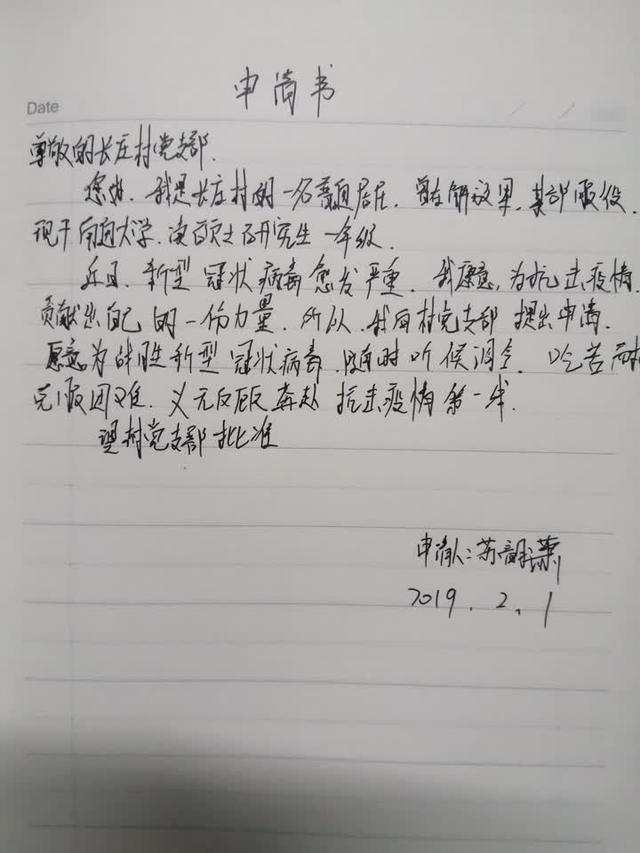 申请书
Date
尊敬的长庄村党支部.
您好. 我是长庄村的一名普通居民. 曾在解放军. 某部服役.
现于南通大学. 读硕士研究生一年级.
近日. 新型冠状病毒愈发严重. 我愿意, 为抗击疫情.
贡献出自己的一份力量. 所以. 我向村党支部提出申请.
愿意为战胜新型冠状病毒. 随时听候调令. 吃苦耐
克服困难. 义无反顾奔赴抗击疫情第一线.
望村党支部批准
申请人: 苏
2019. 2. 1